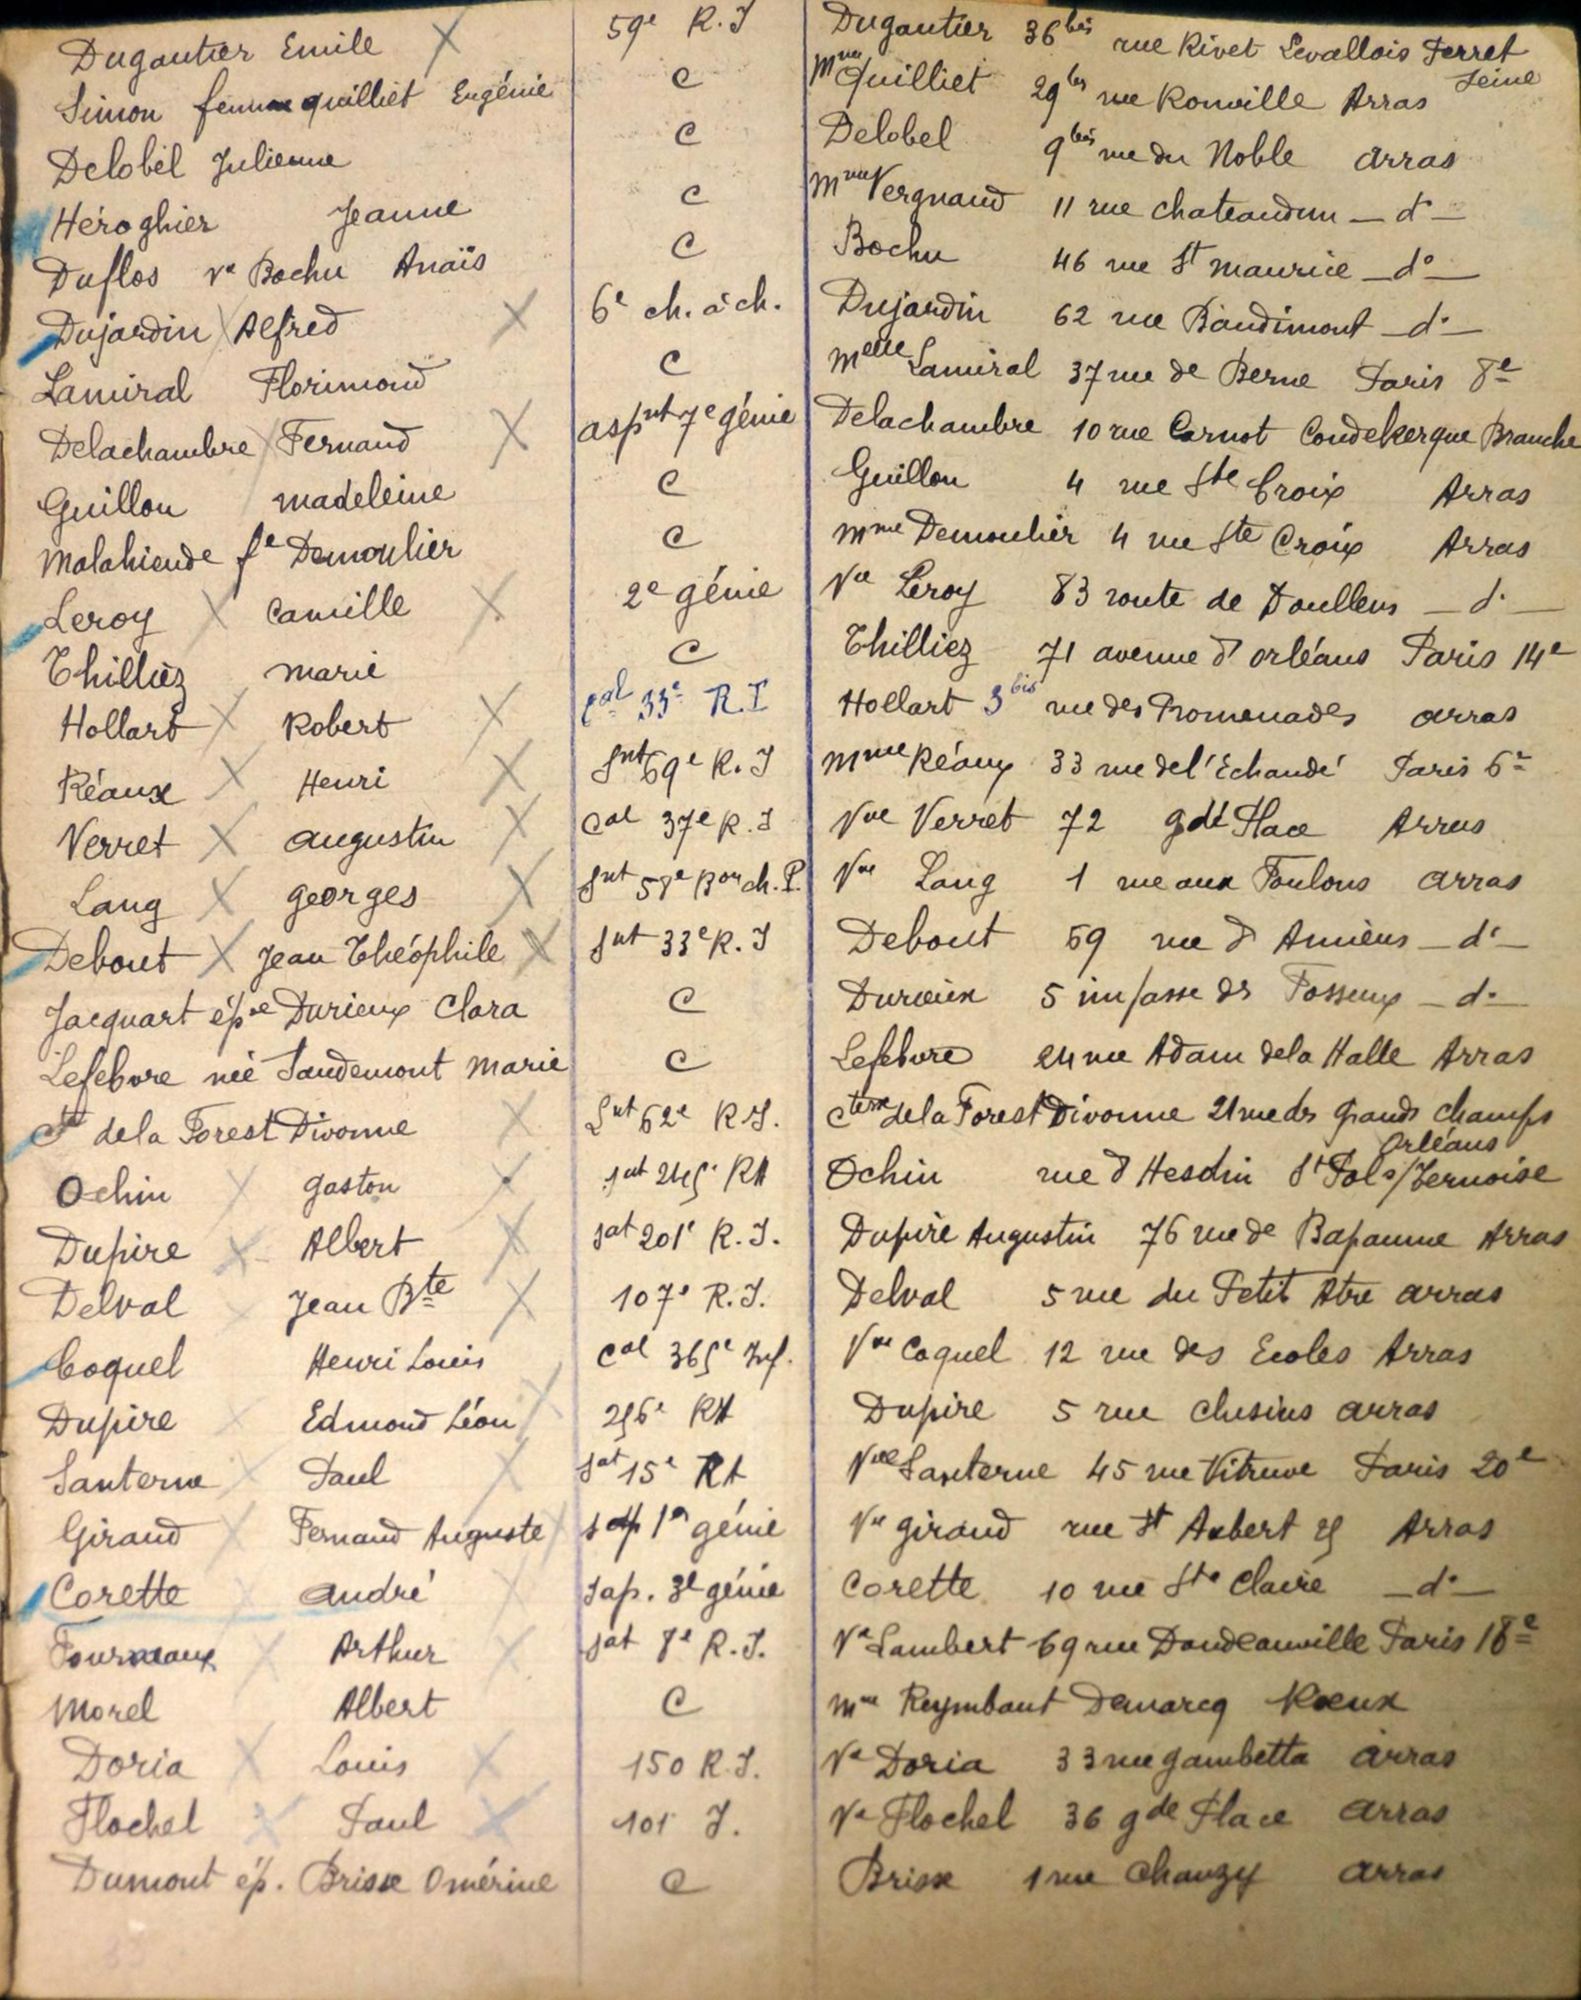 Dugautier Emile X 59e R.I Dugautier 36bis rue Rivet Levallois Perret Seine
Simon femme Quilliet Eugénie C Mme Quilliet 29bis rue Ronville Arras
Delobel Julienne C Delobel 9bis rue du Noble Arras
Héroghier Jeanne C Mme Vergnaud 11 rue chateaudun — d° —
Duflos ve Bochu Anaïs C Bochu 46 rue St maurice — d° —
Dujardin X Alfred X 6e ch. à ch. Dujardin 62 rue Baudimont — d° —
Lamiral Florimond C Melle Lamiral 37 rue de Berne Paris 8e
Delachambre X Fernand X aspnt 7e génie Delachambre 10 rue Carnot Coudekerque Branche
Guillou madeleine C Guillou 4 rue Ste Croix Arras
Malahieude fe Demoulier C Mme Demoulier 4 rue Ste Croix Arras
Leroy X Camille X 2e génie Vve Leroy 83 route de Doullens — d° —
Thilliez marie C Thilliez 71 avenue d'orléans Paris 14e
Hollart X Robert X cal 33e R.I Hollart 3bis rue des Promenades arras
Réaux X Henri X Snt 69e R.I Mme Réaux 33 rue de l'Echaudé Paris 6e
Verret X augustin X Cal 37e R.I Vve Verret 72 gde Place Arras
Lang X georges X Snt 58e Bon ch. P. Vve Lang 1 rue aux Foulons arras
Debout X Jean Théophile X Snt 33e R.I Debout 59 rue d'Amiens — d° —
Jacquart épse Durieux Clara C Durieux 5 impasse des Fosseux — d° —
Lefebvre née Saudemont Marie C Lefebvre 24 rue Adam de la Halle Arras
Cte de la Forest Divonne X Snt 62e R.I. Ctesse de la Forest Divonne 21 rue des grands champs Orléans
Ochin X gaston X snt 245e RA Ochin rue d'Hesdin St Pol s/Ternoise
Dupire X Albert X sat 201e R.I. Dupire Augustin 76 rue de Bapaume Arras
Delval Jean Bte X 107e R.I. Delval 5 rue du Petit Atre arras
Coquel Henri Louis cal 365e Inf. Vve Coquel 12 rue des Ecoles Arras
Dupire X Edmond Léon X 256e RA Dupire 5 rue Clusius arras
Santerne X Paul X Sat 15e RA Vve Santerne 45 rue Vitruve Paris 20e
Giraud X Fernand Auguste X sap 1er génie Vve giraud rue St Aubert 25 Arras
Corette X andré X sap. 3e génie Corette 10 rue Ste Claire — d° —
Fourmaux X Arthur X sat 8e R.I. Ve Lambert 69 rue Doudeauville Paris 18e
Morel Albert C Mme Reymbaut Demarcq Roeux
Doria X Louis X 150 R.I. Ve Doria 33 rue gambetta arras
Flochel X Paul X 101 I. Ve Flochel 36 gde Place arras
Dumont ép. Brisse Omérine C Brisse 1 rue Chanzy arras